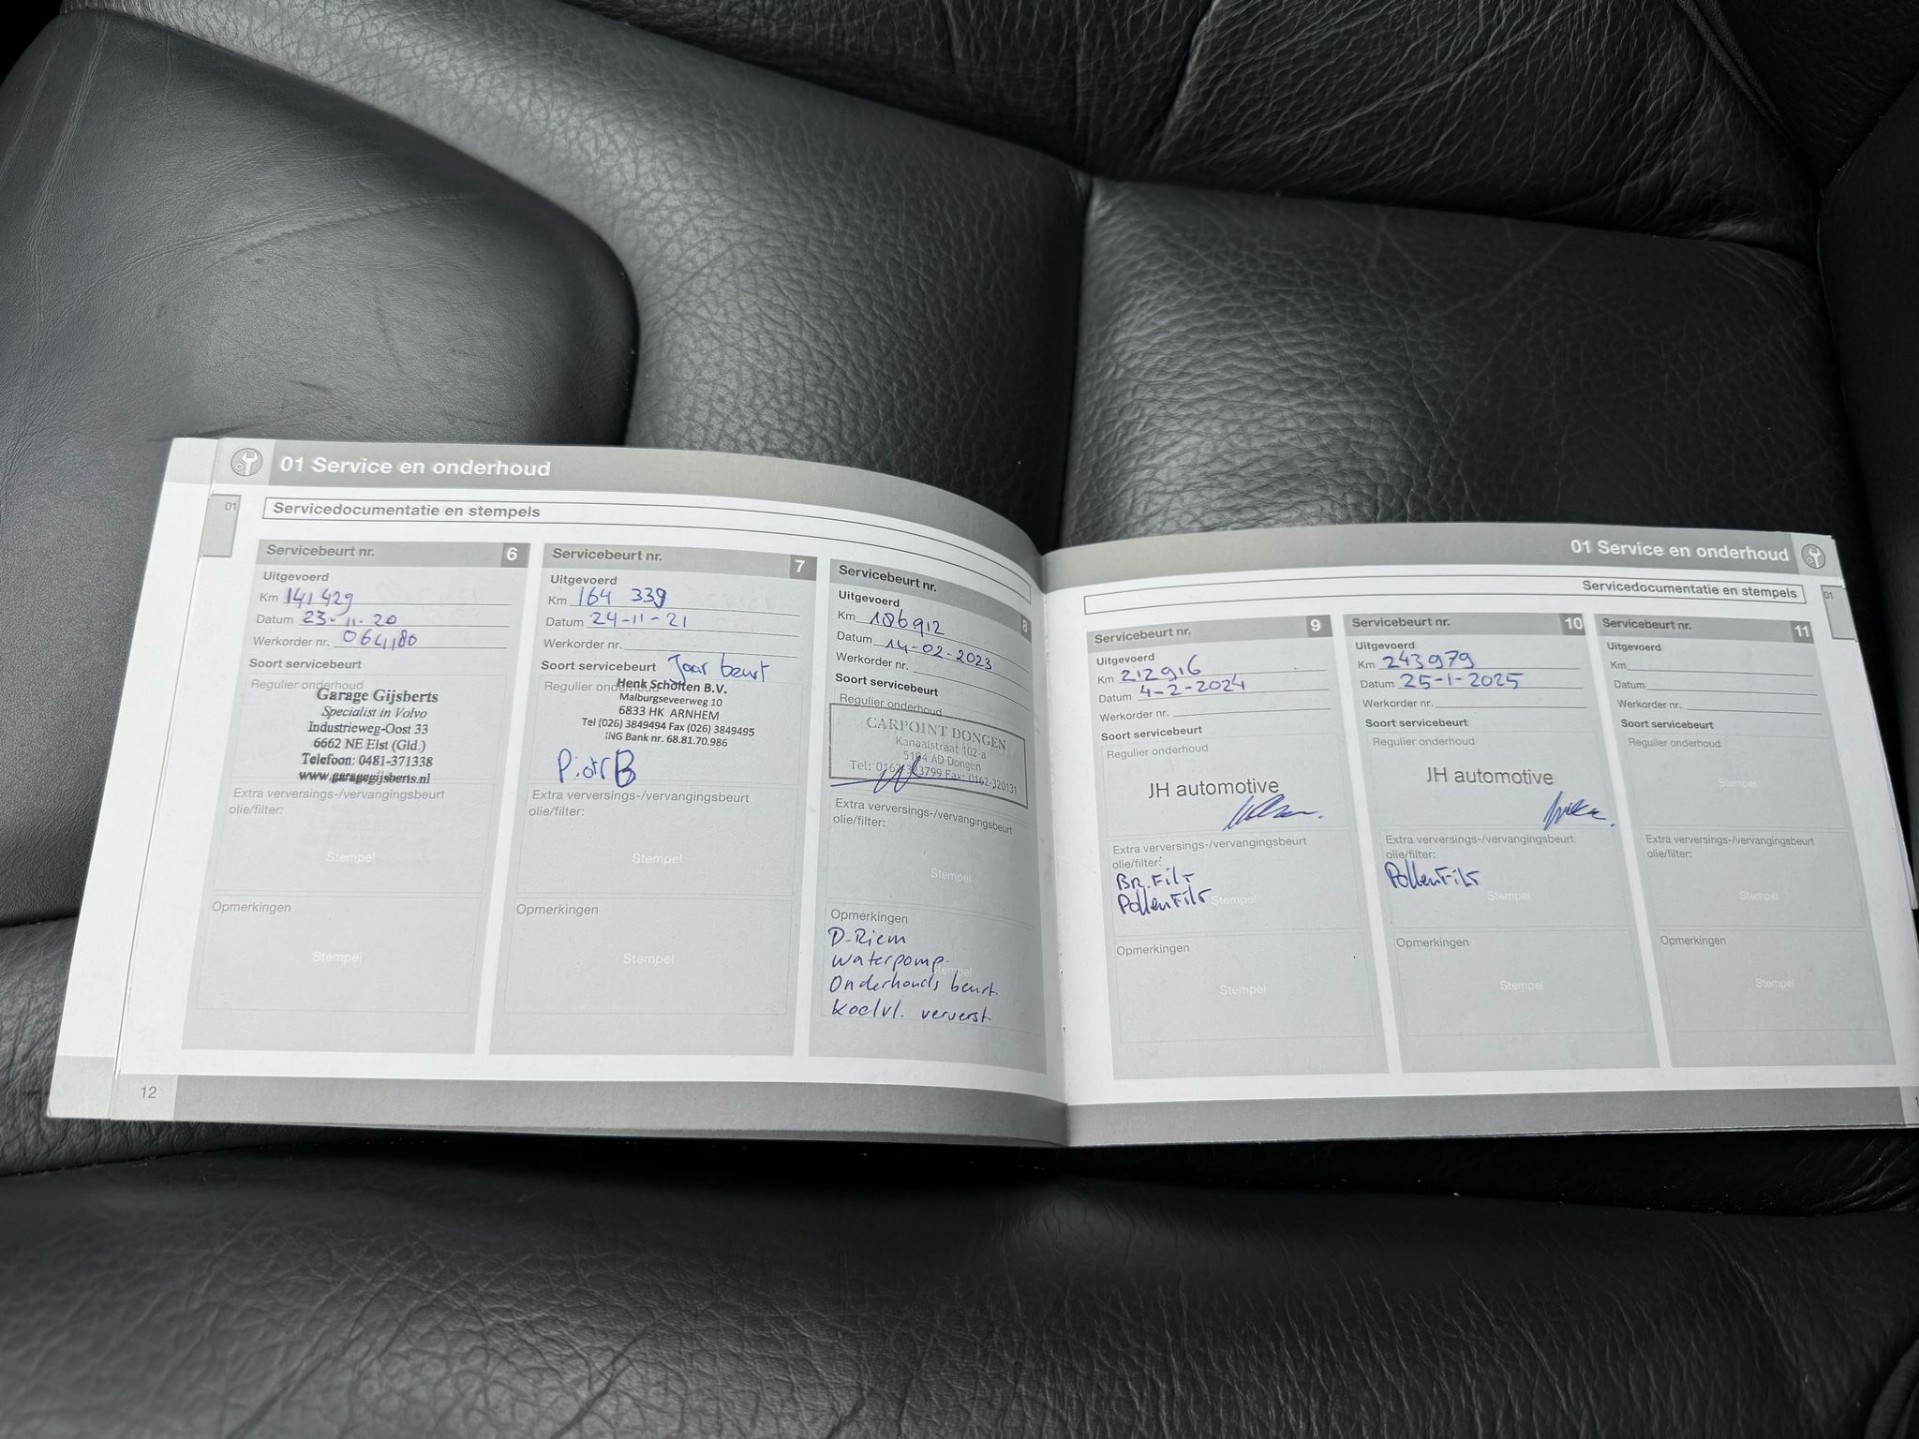 01 Service en onderhoud
01
Servicedocumentatie en stempels
Servicebeurt nr. 6
Uitgevoerd
Km 141 429
Datum 23-11-20
Werkorder nr. 064180
Soort servicebeurt
Regulier onderhoud
Garage Gijsberts
Specialist in Volvo
Industrieweg-Oost 33
6662 NE Elst (Gld.)
Telefoon: 0481-371338
www.garagegijsberts.nl
Extra verversings-/vervangingsbeurt
olie/filter:
Stempel
Opmerkingen
Stempel
Servicebeurt nr. 7
Uitgevoerd
Km 164 339
Datum 24-11-21
Werkorder nr.
Soort servicebeurt Jaar beurt
Regulier onderhoud
Henk Scholten B.V.
Malburgseveerweg 10
6833 HK ARNHEM
Tel (026) 3849494 Fax (026) 3849495
ING Bank nr. 68.81.70.986
Piotr B
Extra verversings-/vervangingsbeurt
olie/filter:
Stempel
Opmerkingen
Stempel
Servicebeurt nr. 8
Uitgevoerd
Km 186912
Datum 14-02-2023
Werkorder nr.
Soort servicebeurt
Regulier onderhoud
CARPOINT DONGEN
Kanaalstraat 102-a
5104 AD Dongen
Tel: 0162-323799 Fax: 0162-320131
Extra verversings-/vervangingsbeurt
olie/filter:
Stempel
Opmerkingen
D-Riem
Waterpomp
Stempel
Onderhouds beurt
Koelvl. ververst
12
01 Service en onderhoud
Servicedocumentatie en stempels
01
Servicebeurt nr. 9
Uitgevoerd
Km 212916
Datum 4-2-2024
Werkorder nr.
Soort servicebeurt
Regulier onderhoud
JH automotive
Extra verversings-/vervangingsbeurt
olie/filter:
Br. Filt
PollenFilt Stempel
Opmerkingen
Stempel
Servicebeurt nr. 10
Uitgevoerd
Km 243979
Datum 25-1-2025
Werkorder nr.
Soort servicebeurt
Regulier onderhoud
JH automotive
Extra verversings-/vervangingsbeurt
olie/filter:
PollenFilt
Stempel
Opmerkingen
Stempel
Servicebeurt nr. 11
Uitgevoerd
Km
Datum
Werkorder nr.
Soort servicebeurt
Regulier onderhoud
Stempel
Extra verversings-/vervangingsbeurt
olie/filter:
Stempel
Opmerkingen
Stempel